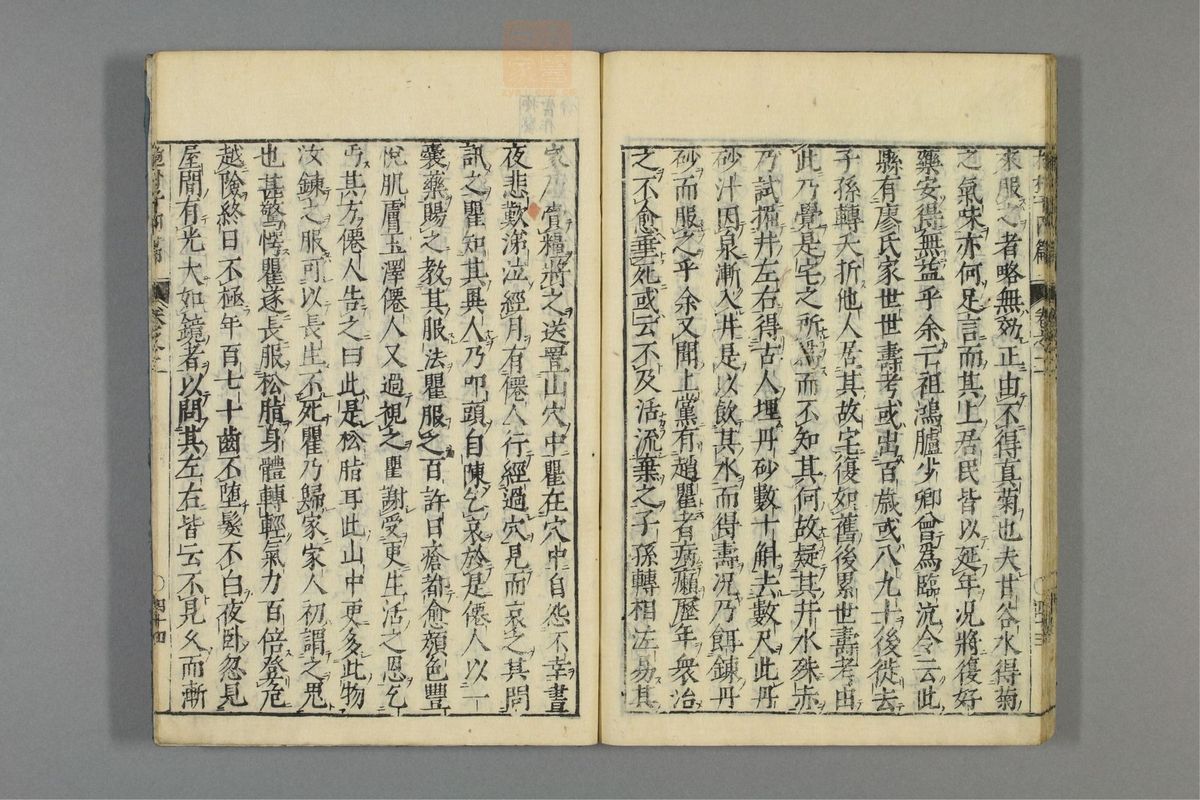 來服之者略無効正由不得真菊也夫甘谷水得菊
之氣味亦何足言而其上居民皆以延年况將復好
藥安得無益乎余亡祖鴻臚少卿曾爲臨沅令云此
縣有廖氏家世世壽考或出百歲或八九十後徙去
子孫轉夭折他人居其故宅復如舊後累世壽考由
此乃覺是宅之所爲而不知其何故疑其井水殊赤
乃試掘井左右得古人埋丹砂數十斛去數尺此丹
砂汁因泉漸入井是以飲其水而得壽况乃餌鍊丹
砂而服之乎余又聞上黨有趙瞿者病癩歷年衆治
之不愈垂死或云不及活流棄之子孫轉相注易其
家乃賫糧將之送置山穴中瞿在穴中自怨不幸晝
夜悲歎涕泣經月有僊人行經過穴見而哀之具問
訊之瞿知其異人乃叩頭自陳乞哀於是僊人以一
囊藥賜之教其服法瞿服之百許日瘡都愈顏色豐
悅肌膚玉澤僊人又過視之瞿謝受更生活之恩乞
丐其方僊人告之曰此是松脂耳此山中更多此物
汝鍊之服可以長生不死瞿乃歸家家人初謂之鬼
也甚驚愕瞿遂長服松脂身體轉輕氣力百倍登危
越險終日不極年百七十齒不墮髮不白夜臥忽見
屋間有光大如鏡者以問其左右皆云不見久而漸
四十四